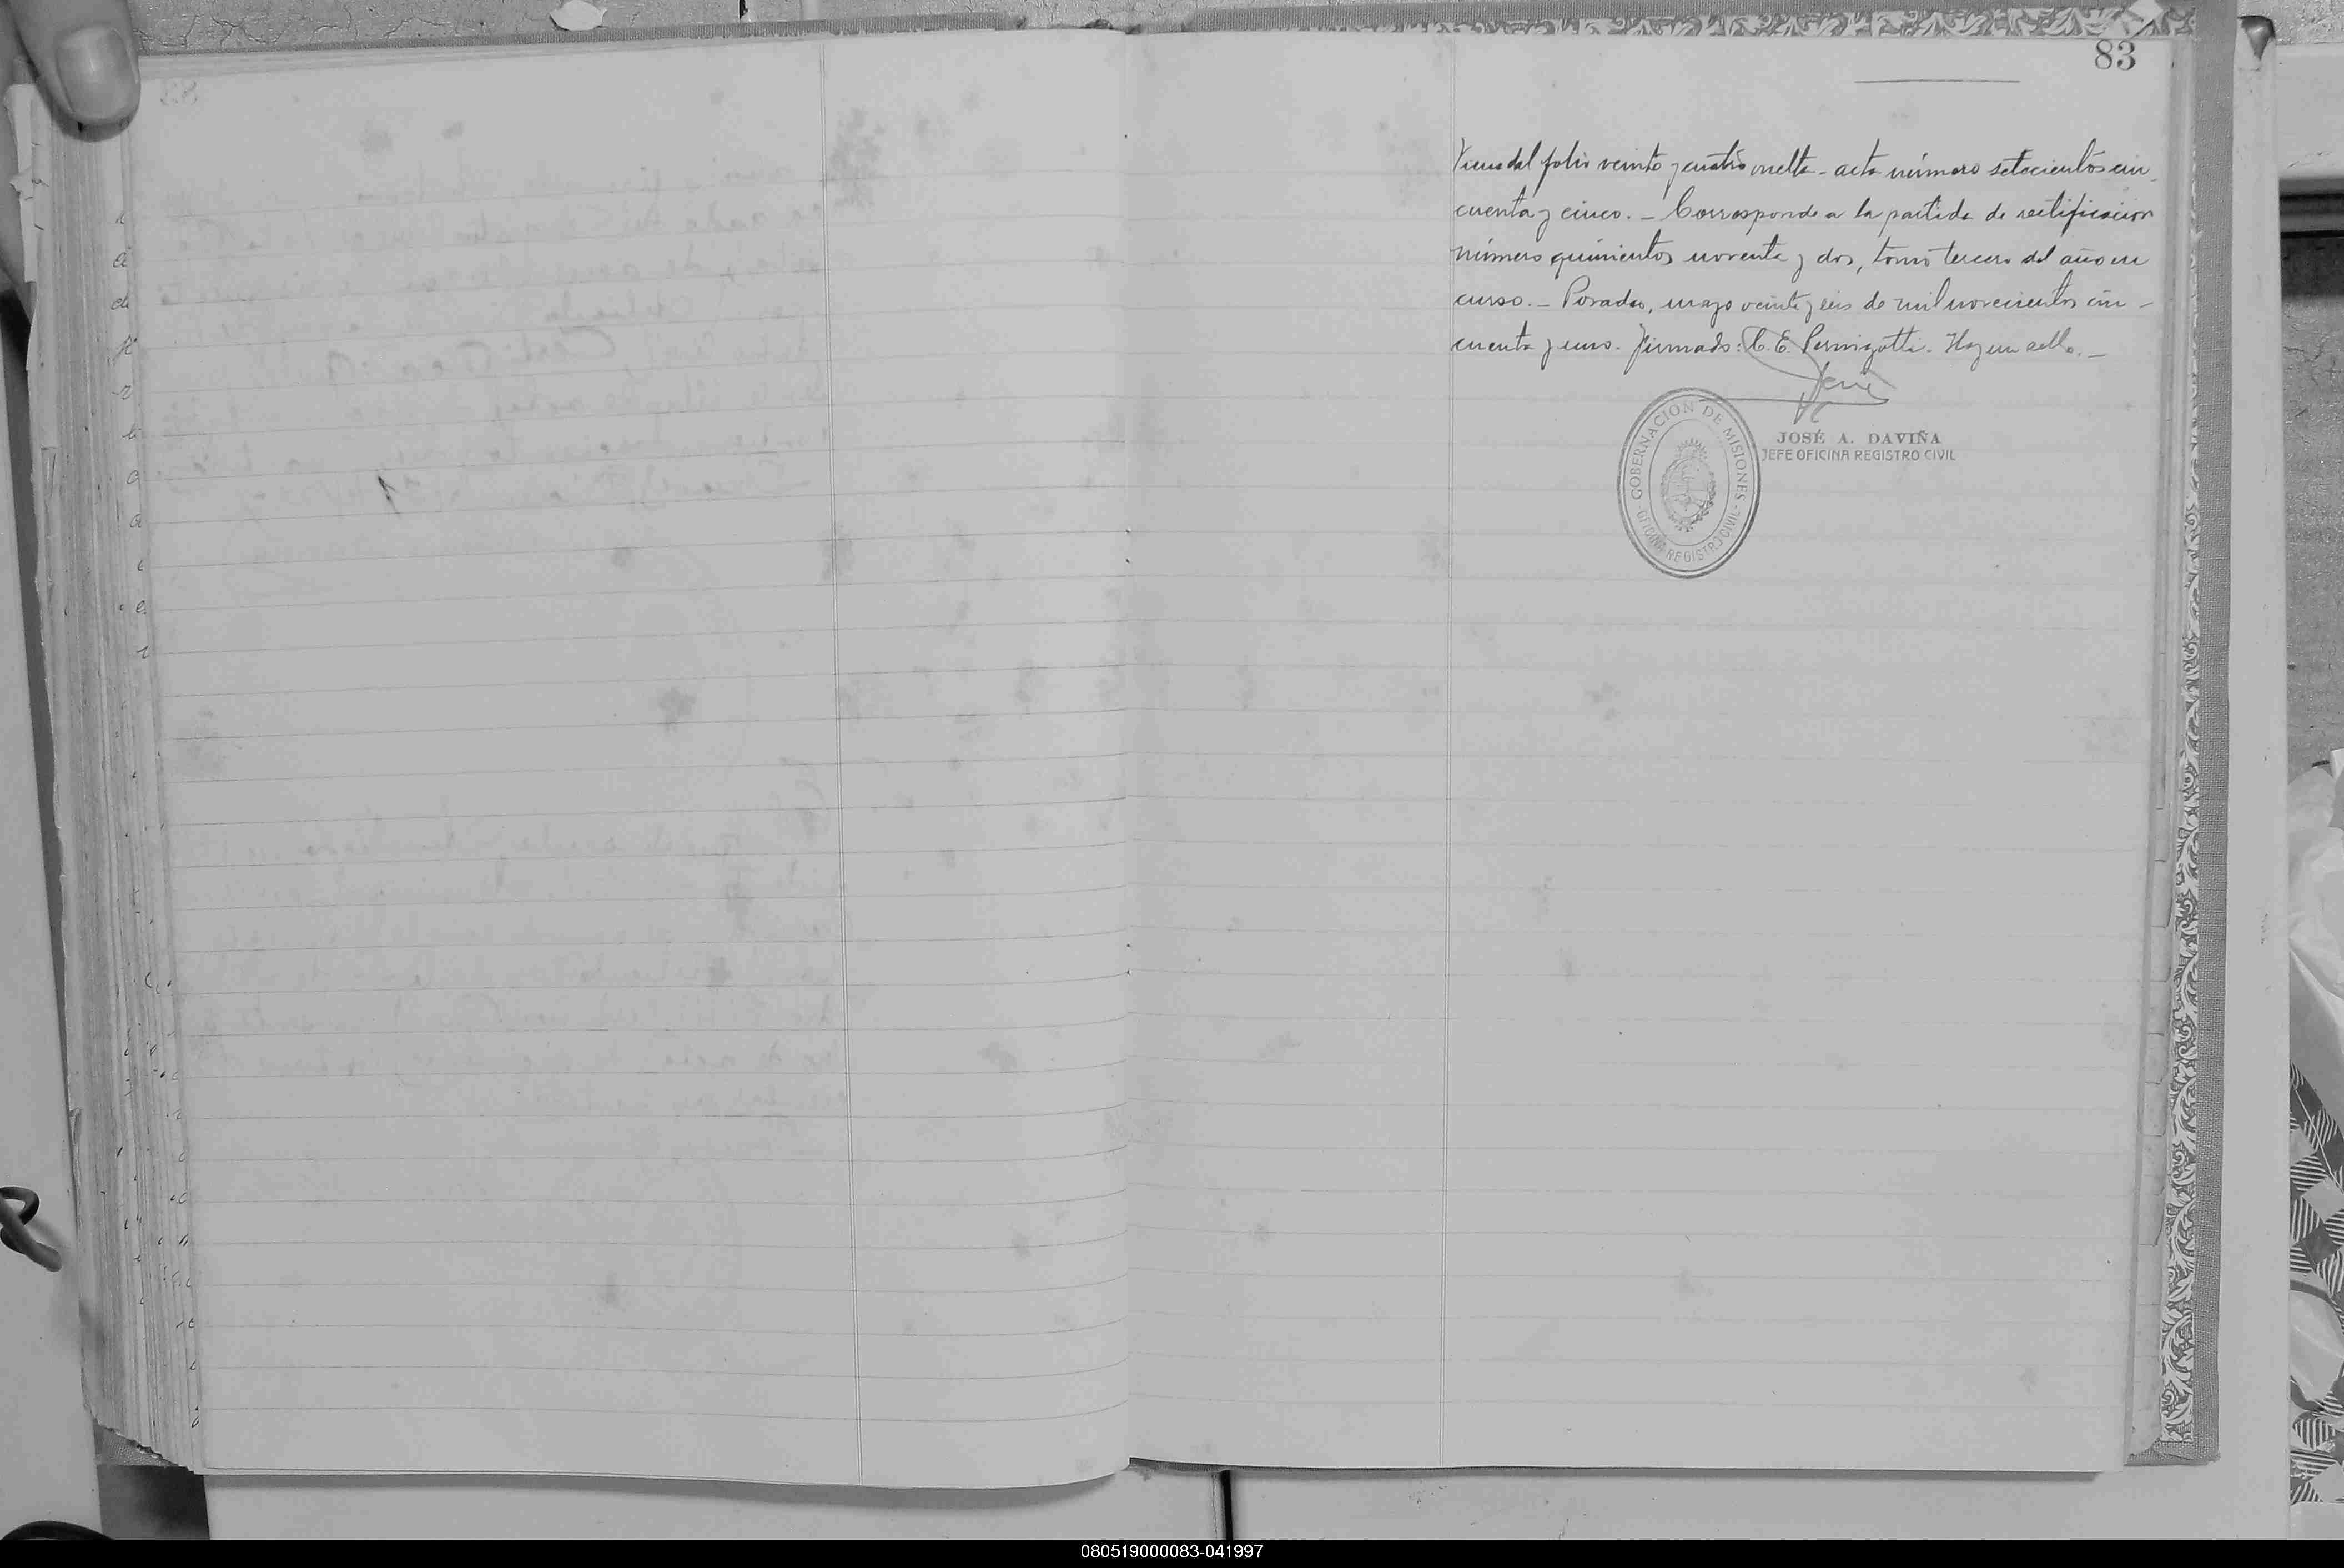 83
Viene del folio veinte y cuatro vuelta - acta número setecientos cin-
cuenta y cinco. - Corresponde a la partida de rectificacion
número quinientos noventa y dos, tomo tercero del año en
curso. - Posadas, mayo veinte y seis de mil novecientos cin-
cuenta y uno. Firmado: C. E. Pernigotti. Hay un sello. -
JOSÉ A. DAVIÑA
JEFE OFICINA REGISTRO CIVIL
GOBERNACION DE MISIONES
OFICINA REGISTRO CIVIL
080519000083-041997